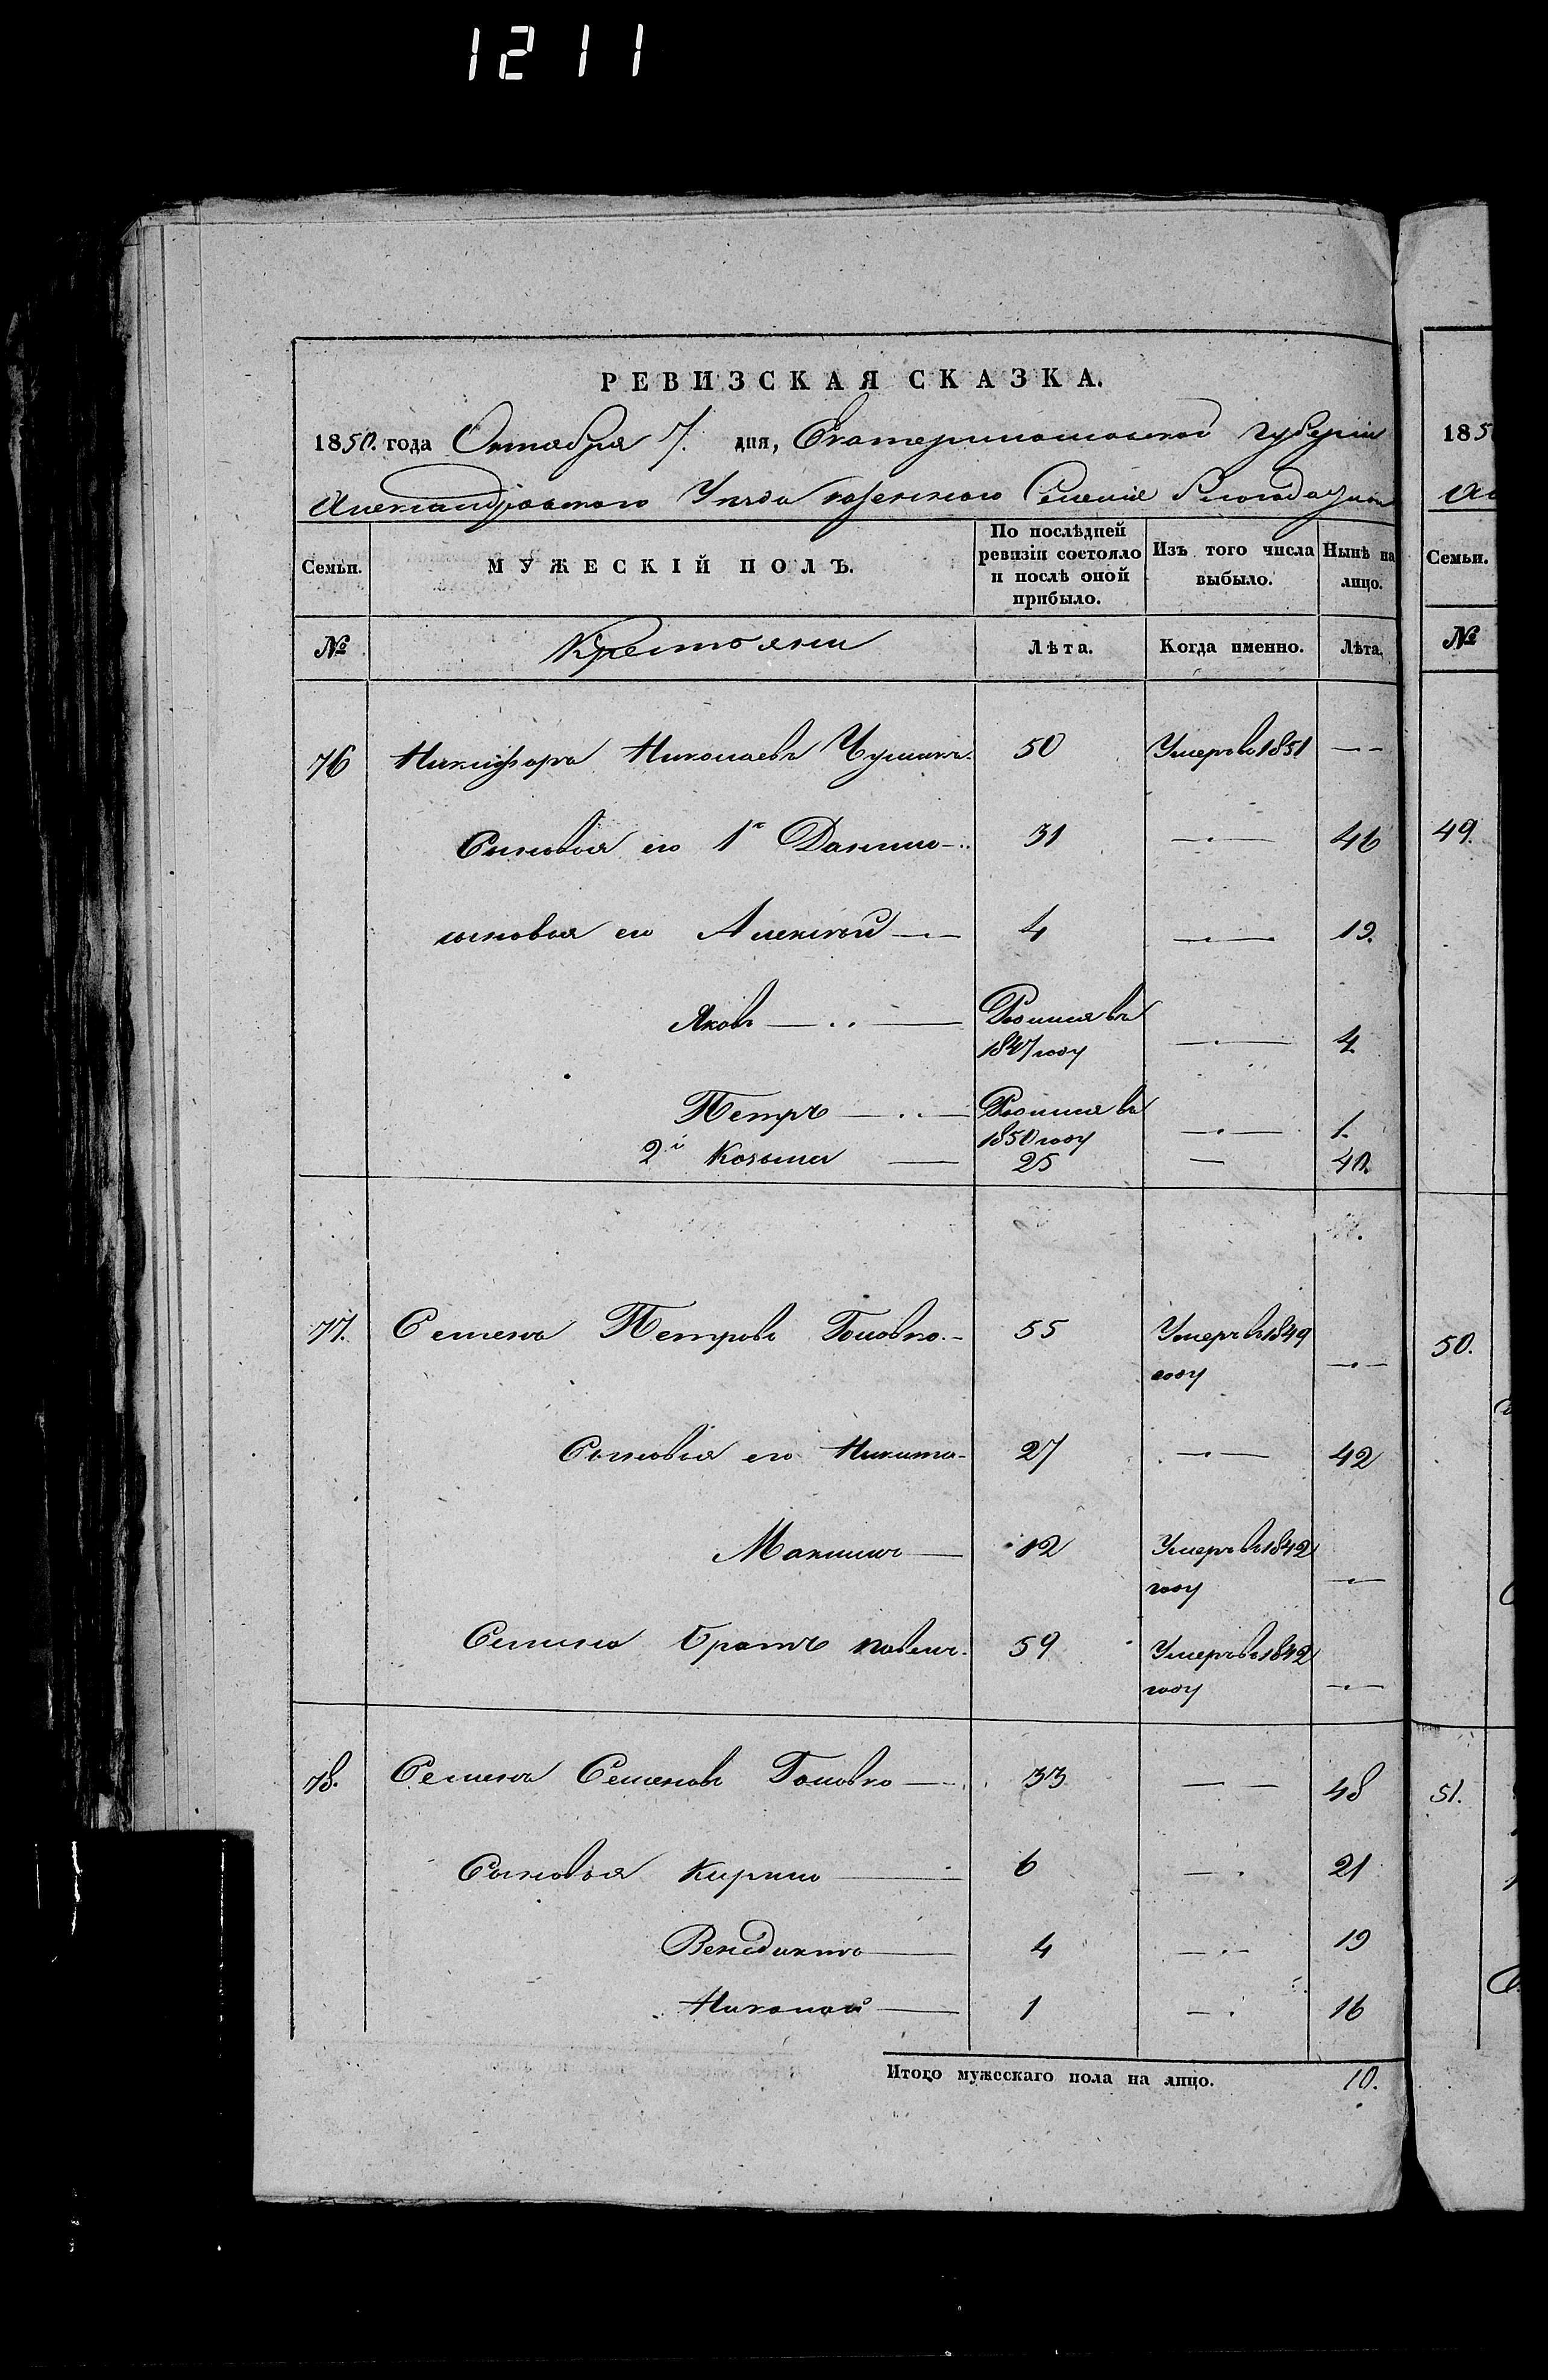 1211
РЕВИЗСКАЯ СКАЗКА.
1850. года Октября 7. дня, Екатеринославской губернiи
Александровского Уезда казенного Селенiя
Семьи. МУЖЕСКIЙ ПОЛЪ. По послѣдней ревизiи состояло и послѣ оной прибыло. Изъ того числа выбыло. Нынѣ на лицо.
№ Крестьяни Лѣта. Когда именно. Лѣта.
76 Никифоръ Николаевъ Чумакъ. 50 Умеръ въ 1851 — —
Сыновья его 1й Данило 31 — 46
сыновья его Алексѣй — 4 — 19.
Яковъ — Родился въ 1847 году — 4.
Петръ — Родился въ 1850 году — 1.
2й Козьма — 25 — 40.
77. Семенъ Петровъ Головко. 55 Умеръ въ 1849 году —
Сыновья его Никита 27 — 42
Максимъ — 12 Умеръ въ 1842 году —
Семена братъ Павелъ. 59 Умеръ въ 1842 году —
78. Семенъ Семеновъ Головко — 33 — 48
Сыновья Кирило — 6 — 21
Венедиктъ — 4 — 19
Николай — 1 — 16
Итого мужескаго пола на лицо. 10.
185
Семьи.
№
49.
50.
51.